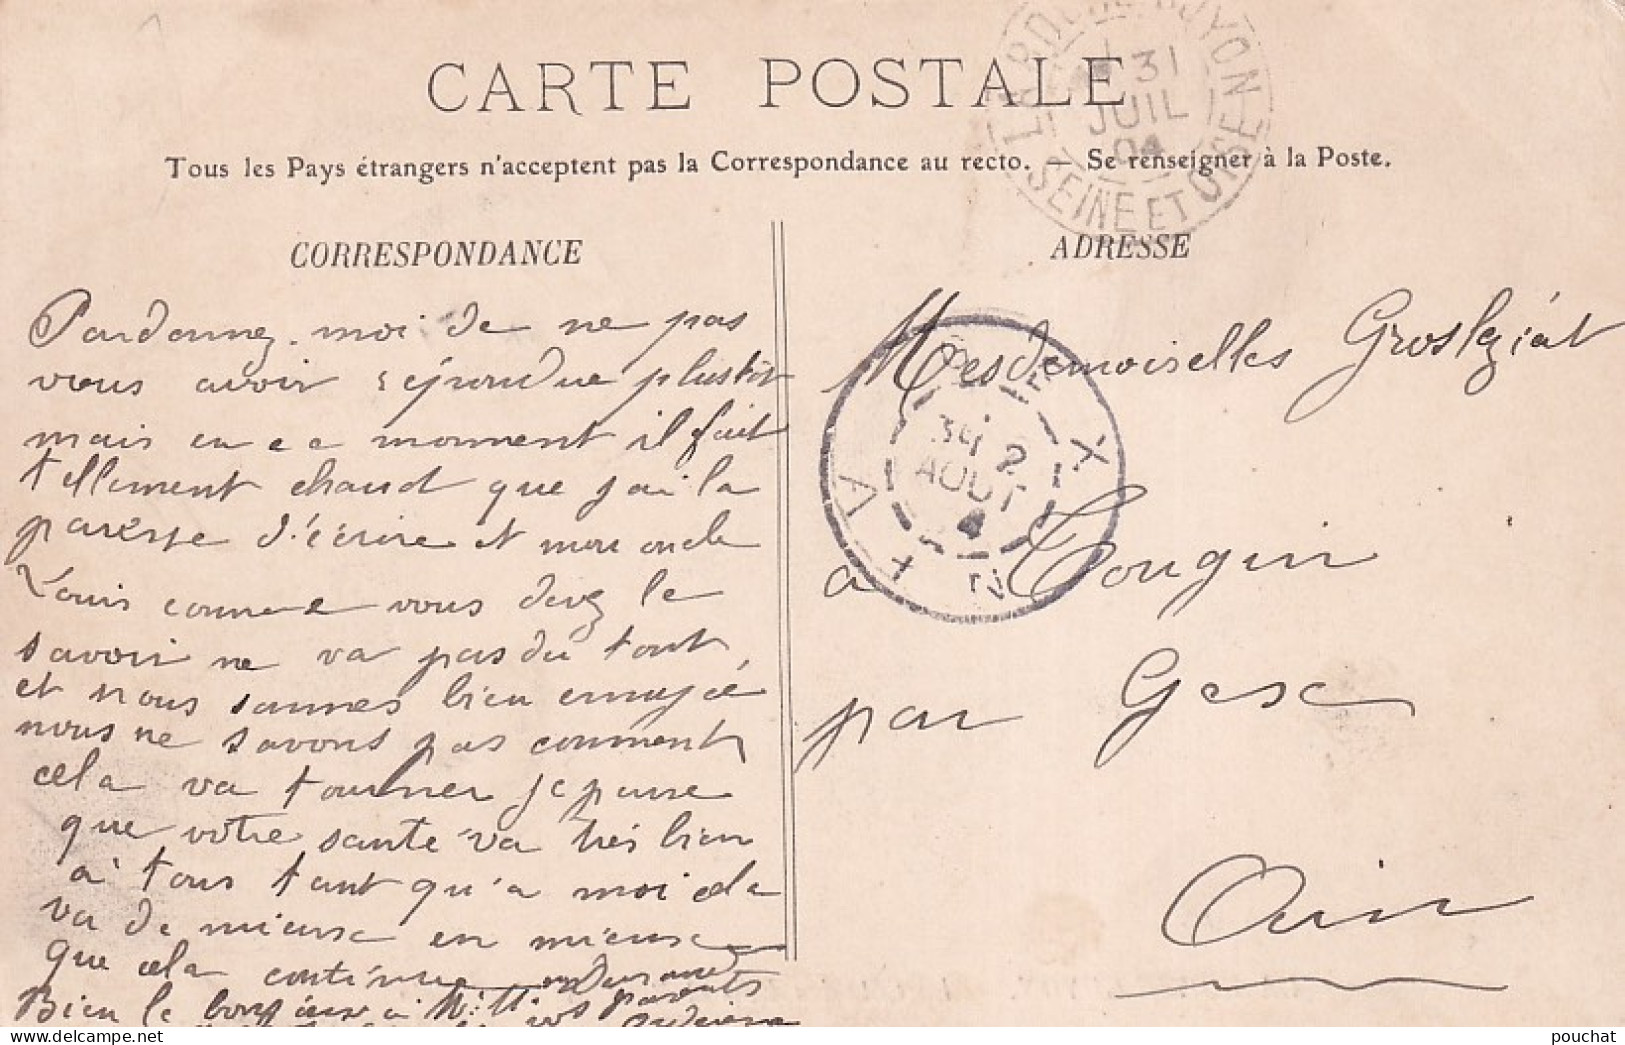 CARTE POSTALE
Tous les Pays étrangers n'acceptent pas la Correspondance au recto. - Se renseigner à la Poste.
CORRESPONDANCE
Pardonnez-moi de ne pas
vous avoir répondue plustôt
mais en ce moment il fait
tellement chaud que j'ai la
paresse d'écrire et mon oncle
Louis comme vous devez le
savoir ne va pas du tout,
et nous sommes bien ennuyé
nous ne savons pas comment
cela va tourner je pense
que votre santé va très bien
à tous tant qu'a moi cela
va de mieux en mieux
que cela continue
Bien le bonjour à
vos parents
ADRESSE
Mesdemoiselles Grosleziat
à Tougin
par Gex
Ain
31
JUIL
04
SEINE ET OISE
GEX
2
AOUT
4
AIN
pouchat